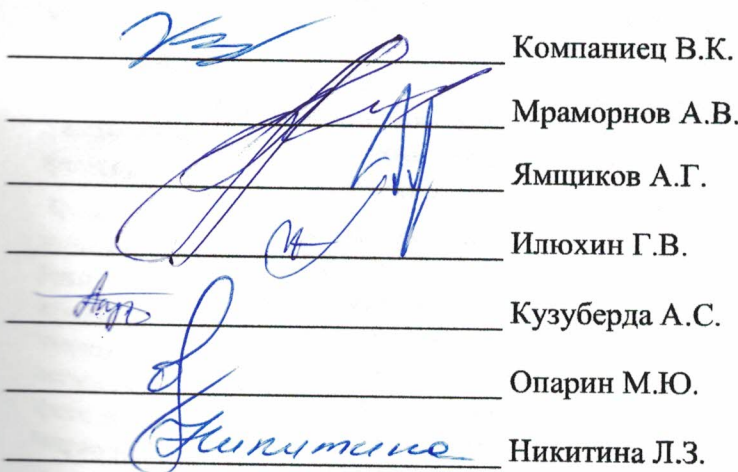 Компаниец В.К.
Мраморнов А.В.
Ямщиков А.Г.
Илюхин Г.В.
Кузуберда А.С.
Опарин М.Ю.
Никитина Никитина Л.З.